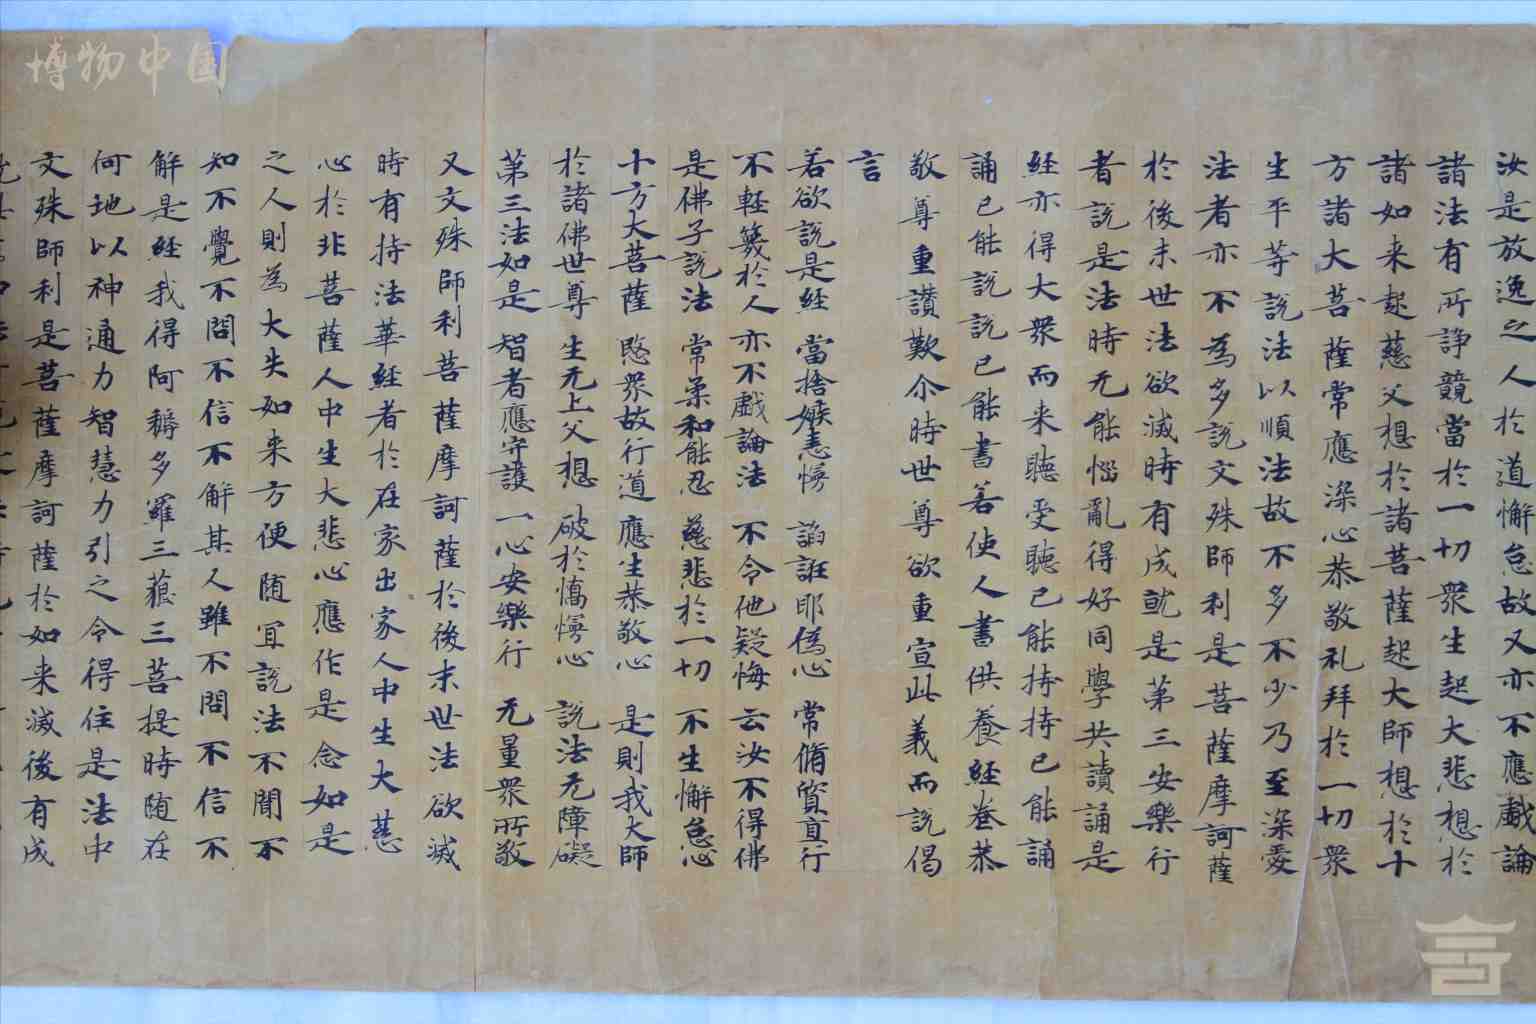 汝是放逸之人於道懈怠故又亦不應戲論
諸法有所諍競當於一切衆生起大悲想於
諸如来起慈父想於諸菩薩起大師想於十
方諸大菩薩常應深心恭敬礼拜於一切衆
生平等說法以順法故不多不少乃至深愛
法者亦不為多說文殊師利是菩薩摩訶薩
於後末世法欲滅時有成就是第三安樂行
者說是法時无能惱亂得好同學共讀誦是
經亦得大衆而来聽受聽已能持持已能誦
誦已能說說已能書若使人書供養經卷恭
敬尊重讃歎尒時世尊欲重宣此義而說偈
言
若欲說是經 當捨嫉恚慢 諂誑耶偽心 常脩質直行
不輕篾於人 亦不戲論法 不令他疑悔 云汝不得佛
是佛子說法 常柔和能忍 慈悲於一切 不生懈怠心
十方大菩薩 愍衆故行道 應生恭敬心 是則我大師
於諸佛世尊 生无上父想 破於憍慢心 說法无障礙
第三法如是 智者應守護 一心安樂行 无量衆所敬
又文殊師利菩薩摩訶薩於後末世法欲滅
時有持法華經者於在家出家人中生大慈
心於非菩薩人中生大悲心應作是念如是
之人則為大失如来方便随宜說法不聞不
知不覺不問不信不解其人雖不問不信不
解是經我得阿耨多羅三藐三菩提時随在
何地以神通力智慧力引之令得住是法中
文殊師利是菩薩摩訶薩於如来滅後有成
博物中国